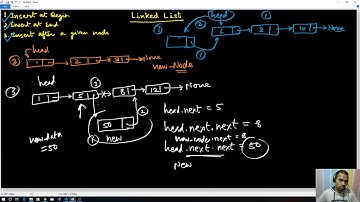 Linked List
1, Insert at Begin
2, Insert at End
3, Insert after a given node
head
1
2
10
None
2
head
1
2
None
new-Node
3
head
1
5
8
12
None
50
new
new.data
=50
head.next = 5
head.next.next = 8
new_node.next = 8
head.next.next = 50
new